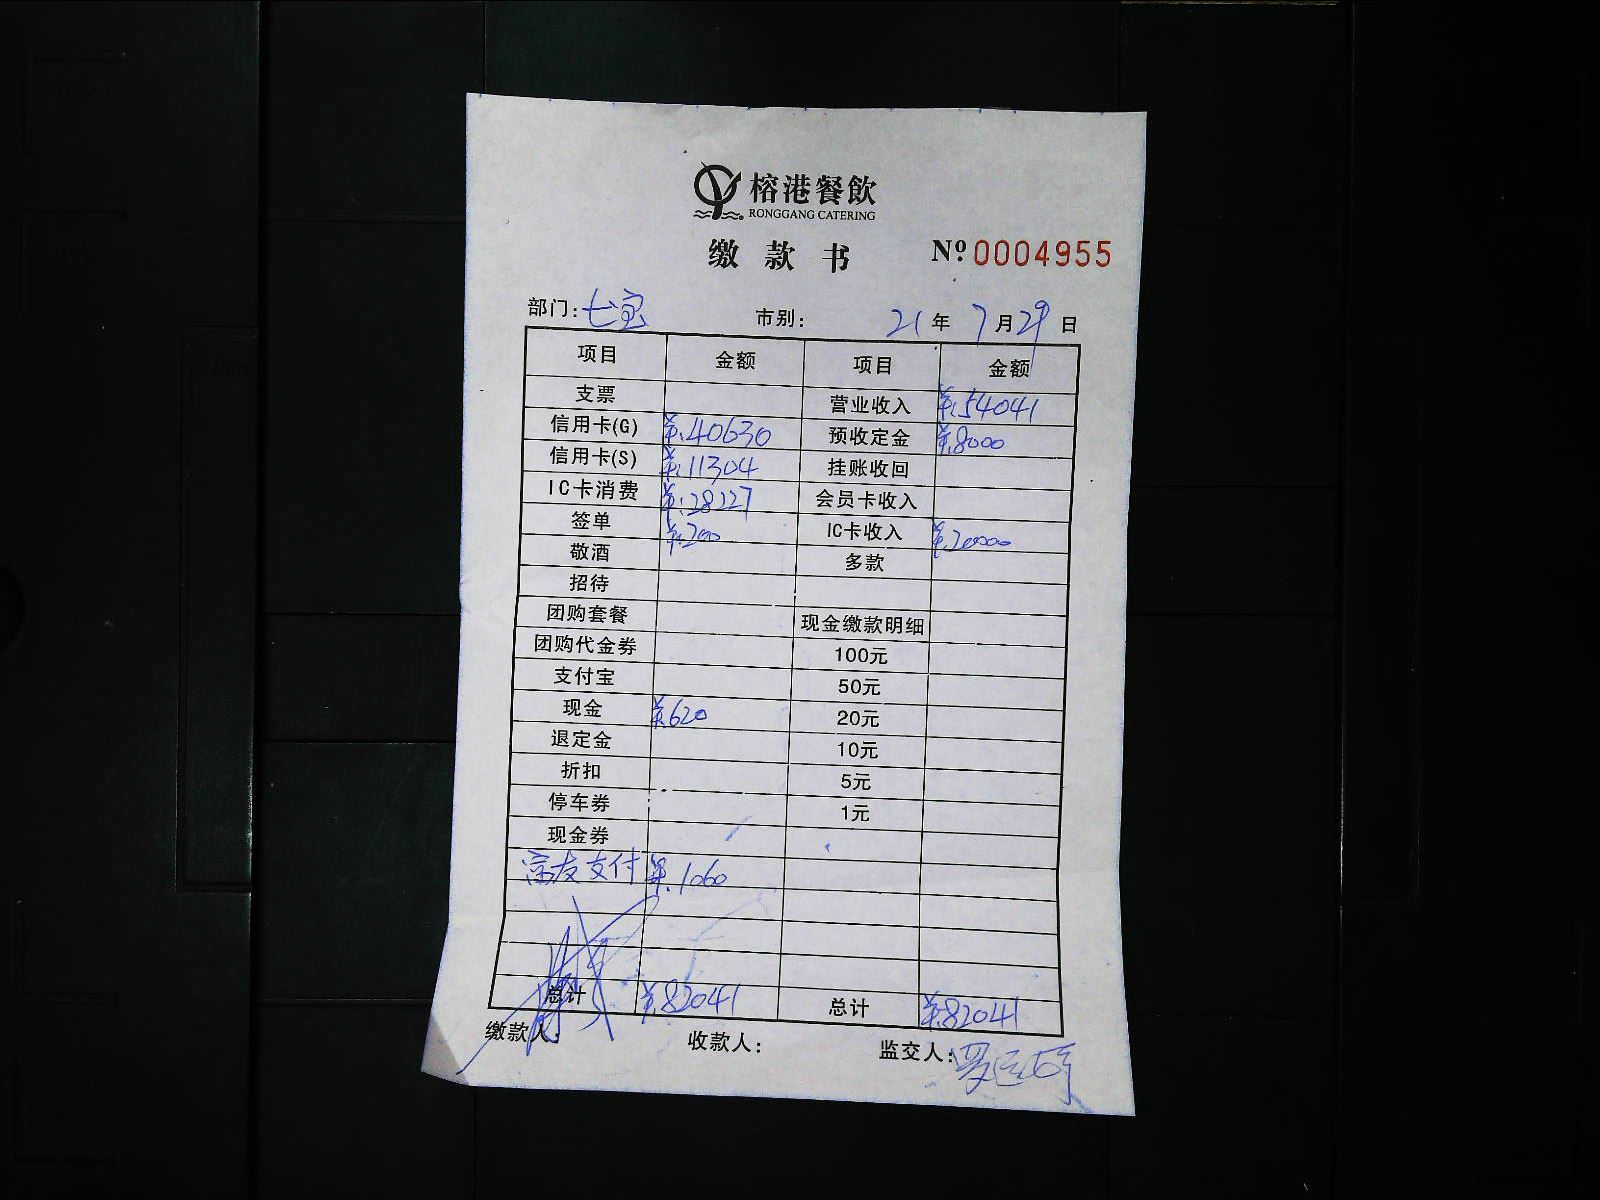 榕港餐飲
RONGGANG CATERING
缴款书 Nº 0004955
部门: 七宝 市别: 21 年 7 月 29 日
项目 金额 项目 金额
支票 营业收入 ¥.54041
信用卡(G) ¥.40630 预收定金 ¥.8000
信用卡(S) ¥.11304 挂账收回
IC卡消费 ¥.28227 会员卡收入
签单 ¥.200 IC卡收入 ¥.20000
敬酒 多款
招待
团购套餐 现金缴款明细
团购代金券 100元
支付宝 50元
现金 ¥.620 20元
退定金 10元
折扣 5元
停车券 1元
现金券
支付 ¥.1060
总计 ¥.82041 总计 ¥.82041
缴款人: 收款人: 监交人: